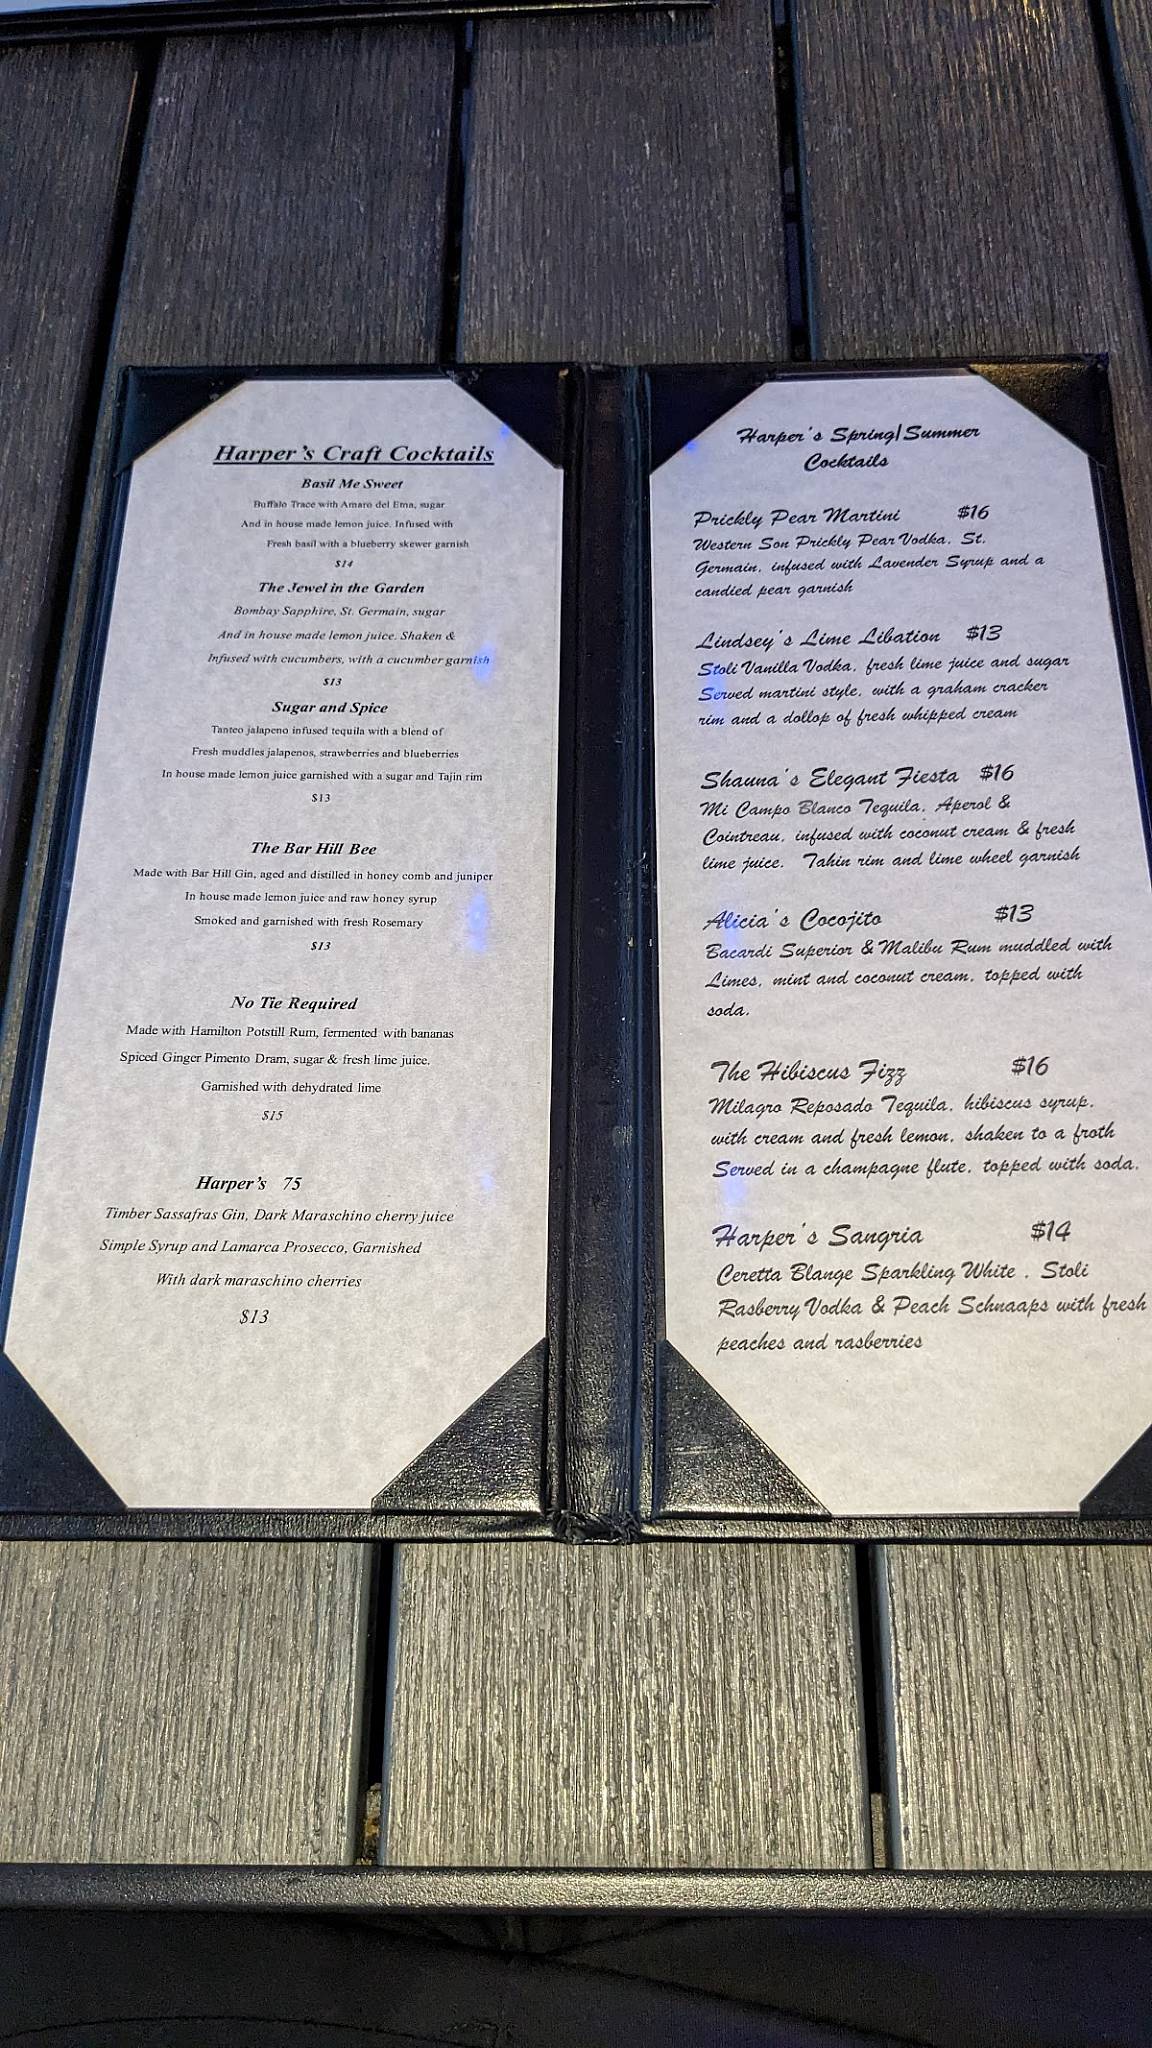 Harper's Craft Cocktails
Basil Me Sweet
Buffalo Trace with Amaro del Ema, sugar
And in house made lemon juice. Infused with
Fresh basil with a blueberry skewer garnish
$14
The Jewel in the Garden
Bombay Sapphire, St. Germain, sugar
And in house made lemon juice. Shaken &
Infused with cucumbers, with a cucumber garnish
$13
Sugar and Spice
Tanteo jalapeno infused tequila with a blend of
Fresh muddles jalapenos, strawberries and blueberries
In house made lemon juice garnished with a sugar and Tajin rim
$13
The Bar Hill Bee
Made with Bar Hill Gin, aged and distilled in honey comb and juniper
In house made lemon juice and raw honey syrup
Smoked and garnished with fresh Rosemary
$13
No Tie Required
Made with Hamilton Potstill Rum, fermented with bananas
Spiced Ginger Pimento Dram, sugar & fresh lime juice.
Garnished with dehydrated lime
$15
Harper's 75
Timber Sassafras Gin, Dark Maraschino cherry juice
Simple Syrup and Lamarca Prosecco, Garnished
With dark maraschino cherries
$13
Harper's Spring/Summer
Cocktails
Prickly Pear Martini $16
Western Son Prickly Pear Vodka, St.
Germain, infused with Lavender Syrup and a
candied pear garnish
Lindsey's Lime Libation $13
Stoli Vanilla Vodka, fresh lime juice and sugar
Served martini style, with a graham cracker
rim and a dollop of fresh whipped cream
Shauna's Elegant Fiesta $16
Mi Campo Blanco Tequila, Aperol &
Cointreau, infused with coconut cream & fresh
lime juice. Tahin rim and lime wheel garnish
Alicia's Cocojito $13
Bacardi Superior & Malibu Rum muddled with
Limes, mint and coconut cream, topped with
soda.
The Hibiscus Fizz $16
Milagro Reposado Tequila, hibiscus syrup,
with cream and fresh lemon, shaken to a froth
Served in a champagne flute, topped with soda.
Harper's Sangria $14
Ceretta Blange Sparkling White . Stoli
Rasberry Vodka & Peach Schnaaps with fresh
peaches and rasberries